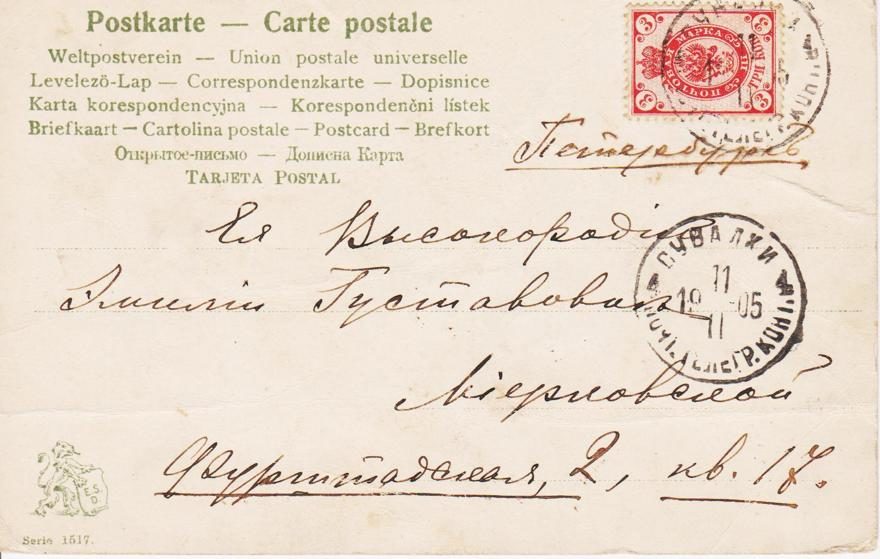 Postkarte — Carte postale
Weltpostverein — Union postale universelle
Levelezö-Lap — Correspondenzkarte — Dopisnice
Karta korespondencyjna — Korespondenční lístek
Briefkaart — Cartolina postale — Postcard — Brefkort
Открытое-письмо — Дописна Карта
TARJETA POSTAL
3 3 3 3
МАРКА
ТРИ КОП
Петербургъ
Ея Высокородію
Эмиліи Густавовнѣ
СУВАЛКИ
11
19 05
11
ПОЧТ.ТЕЛЕГР.КОНТ.
Міерковской
Фурштадская, 2, кв. 17.
E S D
Serie 1517.